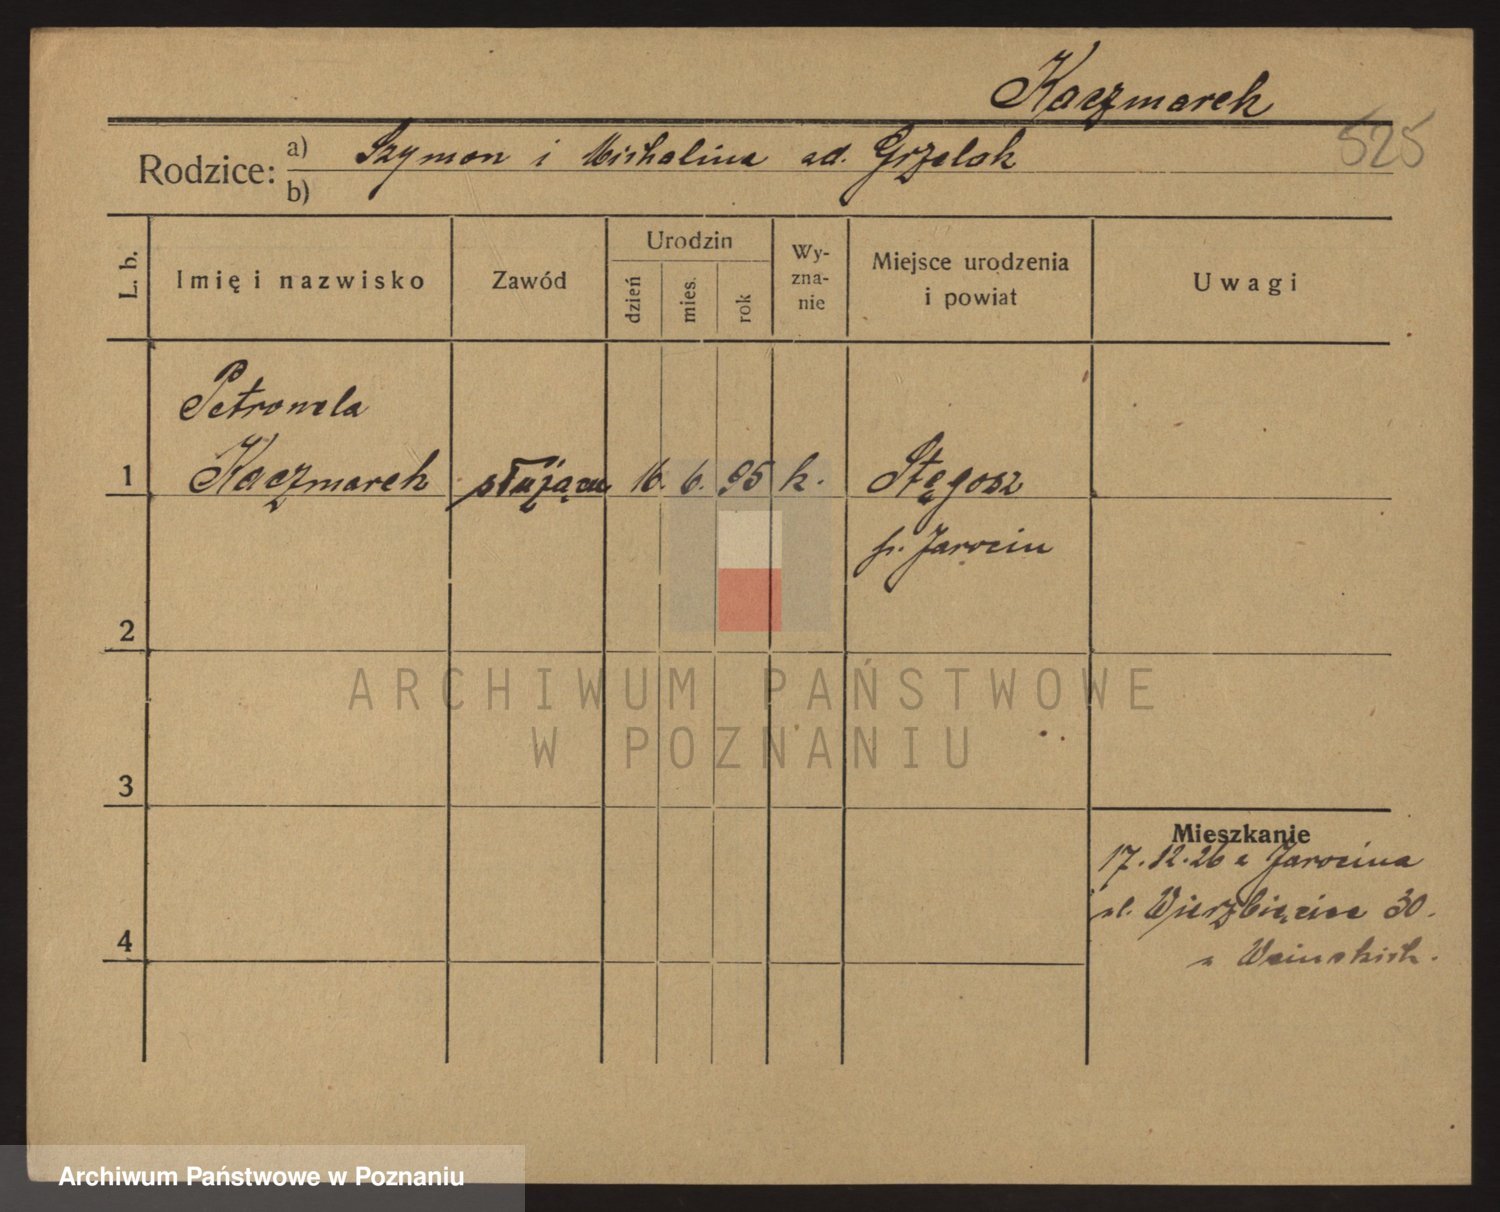 Kaczmarek
525
Rodzice: a) Szymon i Michalina zd. Grzelak
b)
L. b.
Imię i nazwisko
Zawód
Urodzin
dzień
mies.
rok
Wy-
zna-
nie
Miejsce urodzenia
i powiat
Uwagi
Petronela
1 Kaczmarek służąca 16. 6. 95 k. Stęgosz
p. Jarocin
2
3
4
Mieszkanie
17.12.26 z Jarocina
ul. Wierzbięcice 30.
ARCHIWUM PAŃSTWOWE
W POZNANIU
Archiwum Państwowe w Poznaniu